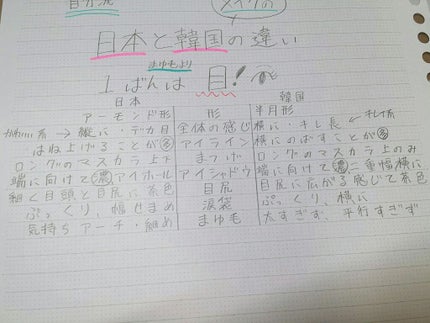 自分流
メイクの
日本と韓国の違い
まゆもより
1ばんは 目!
日本 韓国
アーモンド形 形 半月形
かわいい系 → 縦に・デカ目 全体の感じ 横に・キレ長 ← キレイ系
はね上げることが多 アイライン 横にのばすことが多
ロングのマスカラ上下 まつげ ロングのマスカラ上のみ
端に向けて濃 アイホール アイシャドウ 端に向けて濃 二重幅横に
細く目頭と目尻に茶色 目尻 目尻に広がる感じで茶色
ぷっくり、幅せまめ 涙袋 ぷっくり、横に
気持ちアーチ・細め まゆ毛 太すぎず、平行すぎず